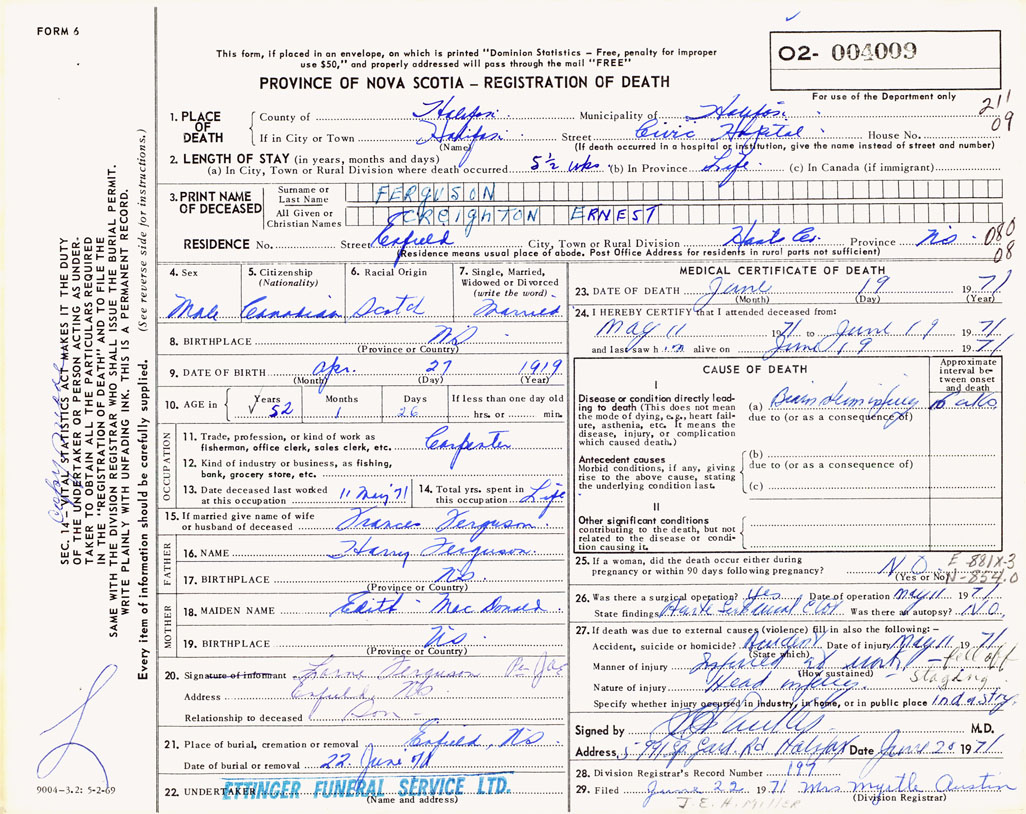 FORM 6
This form, if placed in an envelope, on which is printed "Dominion Statistics – Free, penalty for improper
use $50," and properly addressed will pass through the mail "FREE"
PROVINCE OF NOVA SCOTIA – REGISTRATION OF DEATH
02- 004009
For use of the Department only
211
09
1. PLACE OF DEATH
County of Halifax Municipality of Halifax
If in City or Town Halifax Street Civic Hospital House No.
(Name) (If death occurred in a hospital or institution, give the name instead of street and number)
2. LENGTH OF STAY (in years, months and days)
(a) In City, Town or Rural Division where death occurred 5 1/2 wks (b) In Province Life (c) In Canada (if immigrant)
3. PRINT NAME OF DECEASED
Surname or Last Name FERGUSON
All Given or Christian Names CREIGHTON ERNEST
RESIDENCE No. Street Enfield City, Town or Rural Division Hants Co. Province NS. 080
08
(Residence means usual place of abode. Post Office Address for residents in rural parts not sufficient)
4. Sex
Male
5. Citizenship
(Nationality)
Canadian
6. Racial Origin
Scotch
7. Single, Married,
Widowed or Divorced
(write the word)
Married
8. BIRTHPLACE NS
(Province or Country)
9. DATE OF BIRTH Apr. 27 1919
(Month) (Day) (Year)
10. AGE in
Years Months Days If less than one day old
52 1 26 hrs. or min.
OCCUPATION
11. Trade, profession, or kind of work as
fisherman, office clerk, sales clerk, etc. Carpenter
12. Kind of industry or business, as fishing,
bank, grocery store, etc.
13. Date deceased last worked
at this occupation 11 May '71
14. Total yrs. spent in
this occupation Life
15. If married give name of wife
or husband of deceased Frances Ferguson
FATHER
16. NAME Harry Ferguson
17. BIRTHPLACE NS
(Province or Country)
MOTHER
18. MAIDEN NAME Edith MacDonald
19. BIRTHPLACE NS
(Province or Country)
20. Signature of informant Ferguson
Address Enfield, NS
Relationship to deceased Son
21. Place of burial, cremation or removal Enfield, NS
Date of burial or removal 22 June /71
22. UNDERTAKER ETTINGER FUNERAL SERVICE LTD.
(Name and address)
MEDICAL CERTIFICATE OF DEATH
23. DATE OF DEATH June 19 1971
(Month) (Day) (Year)
24. I HEREBY CERTIFY that I attended deceased from:
May 11 1971 to June 19 1971
and last saw him alive on June 19 1971
CAUSE OF DEATH
Approximate
interval be-
tween onset
and death
I
Disease or condition directly lead-
ing to death (This does not mean
the mode of dying, e.g., heart fail-
ure, asthenia, etc. It means the
disease, injury, or complication
which caused death.)
(a) Brain
due to (or as a consequence of)
Antecedent causes
Morbid conditions, if any, giving
rise to the above cause, stating
the underlying condition last.
(b)
due to (or as a consequence of)
(c)
II
Other significant conditions
contributing to the death, but not
related to the disease or condi-
tion causing it.
25. If a woman, did the death occur either during
pregnancy or within 90 days following pregnancy? NO
(Yes or No)
E-881X-3
N-854.0
26. Was there a surgical operation? Yes Date of operation May 11 1971
State findings Clot Was there an autopsy? NO
27. If death was due to external causes (violence) fill in also the following: –
Accident, suicide or homicide? Accident Date of injury May 11 1971
(State which)
Manner of injury Injured at work – fell off
(How sustained) staging
Nature of injury Head injury
Specify whether injury occurred in industry, in home, or in public place industry
Signed by M.D.
Address 5991 Sp Gard. Rd Halifax Date June 20 1971
28. Division Registrar's Record Number 199
29. Filed June 22 1971 Mrs Myrtle Austin
(Division Registrar)
J. E. H. MILLER
SEC. 14 – VITAL STATISTICS ACT MAKES IT THE DUTY
OF THE UNDERTAKER OR PERSON ACTING AS UNDER-
TAKER TO OBTAIN ALL THE PARTICULARS REQUIRED
IN THE "REGISTRATION OF DEATH" AND TO FILE THE
SAME WITH THE DIVISION REGISTRAR WHO SHALL ISSUE THE BURIAL PERMIT.
WRITE PLAINLY WITH UNFADING INK. THIS IS A PERMANENT RECORD.
Every item of information should be carefully supplied. (See reverse side for instructions.)
9004–3.2: 5-2-69